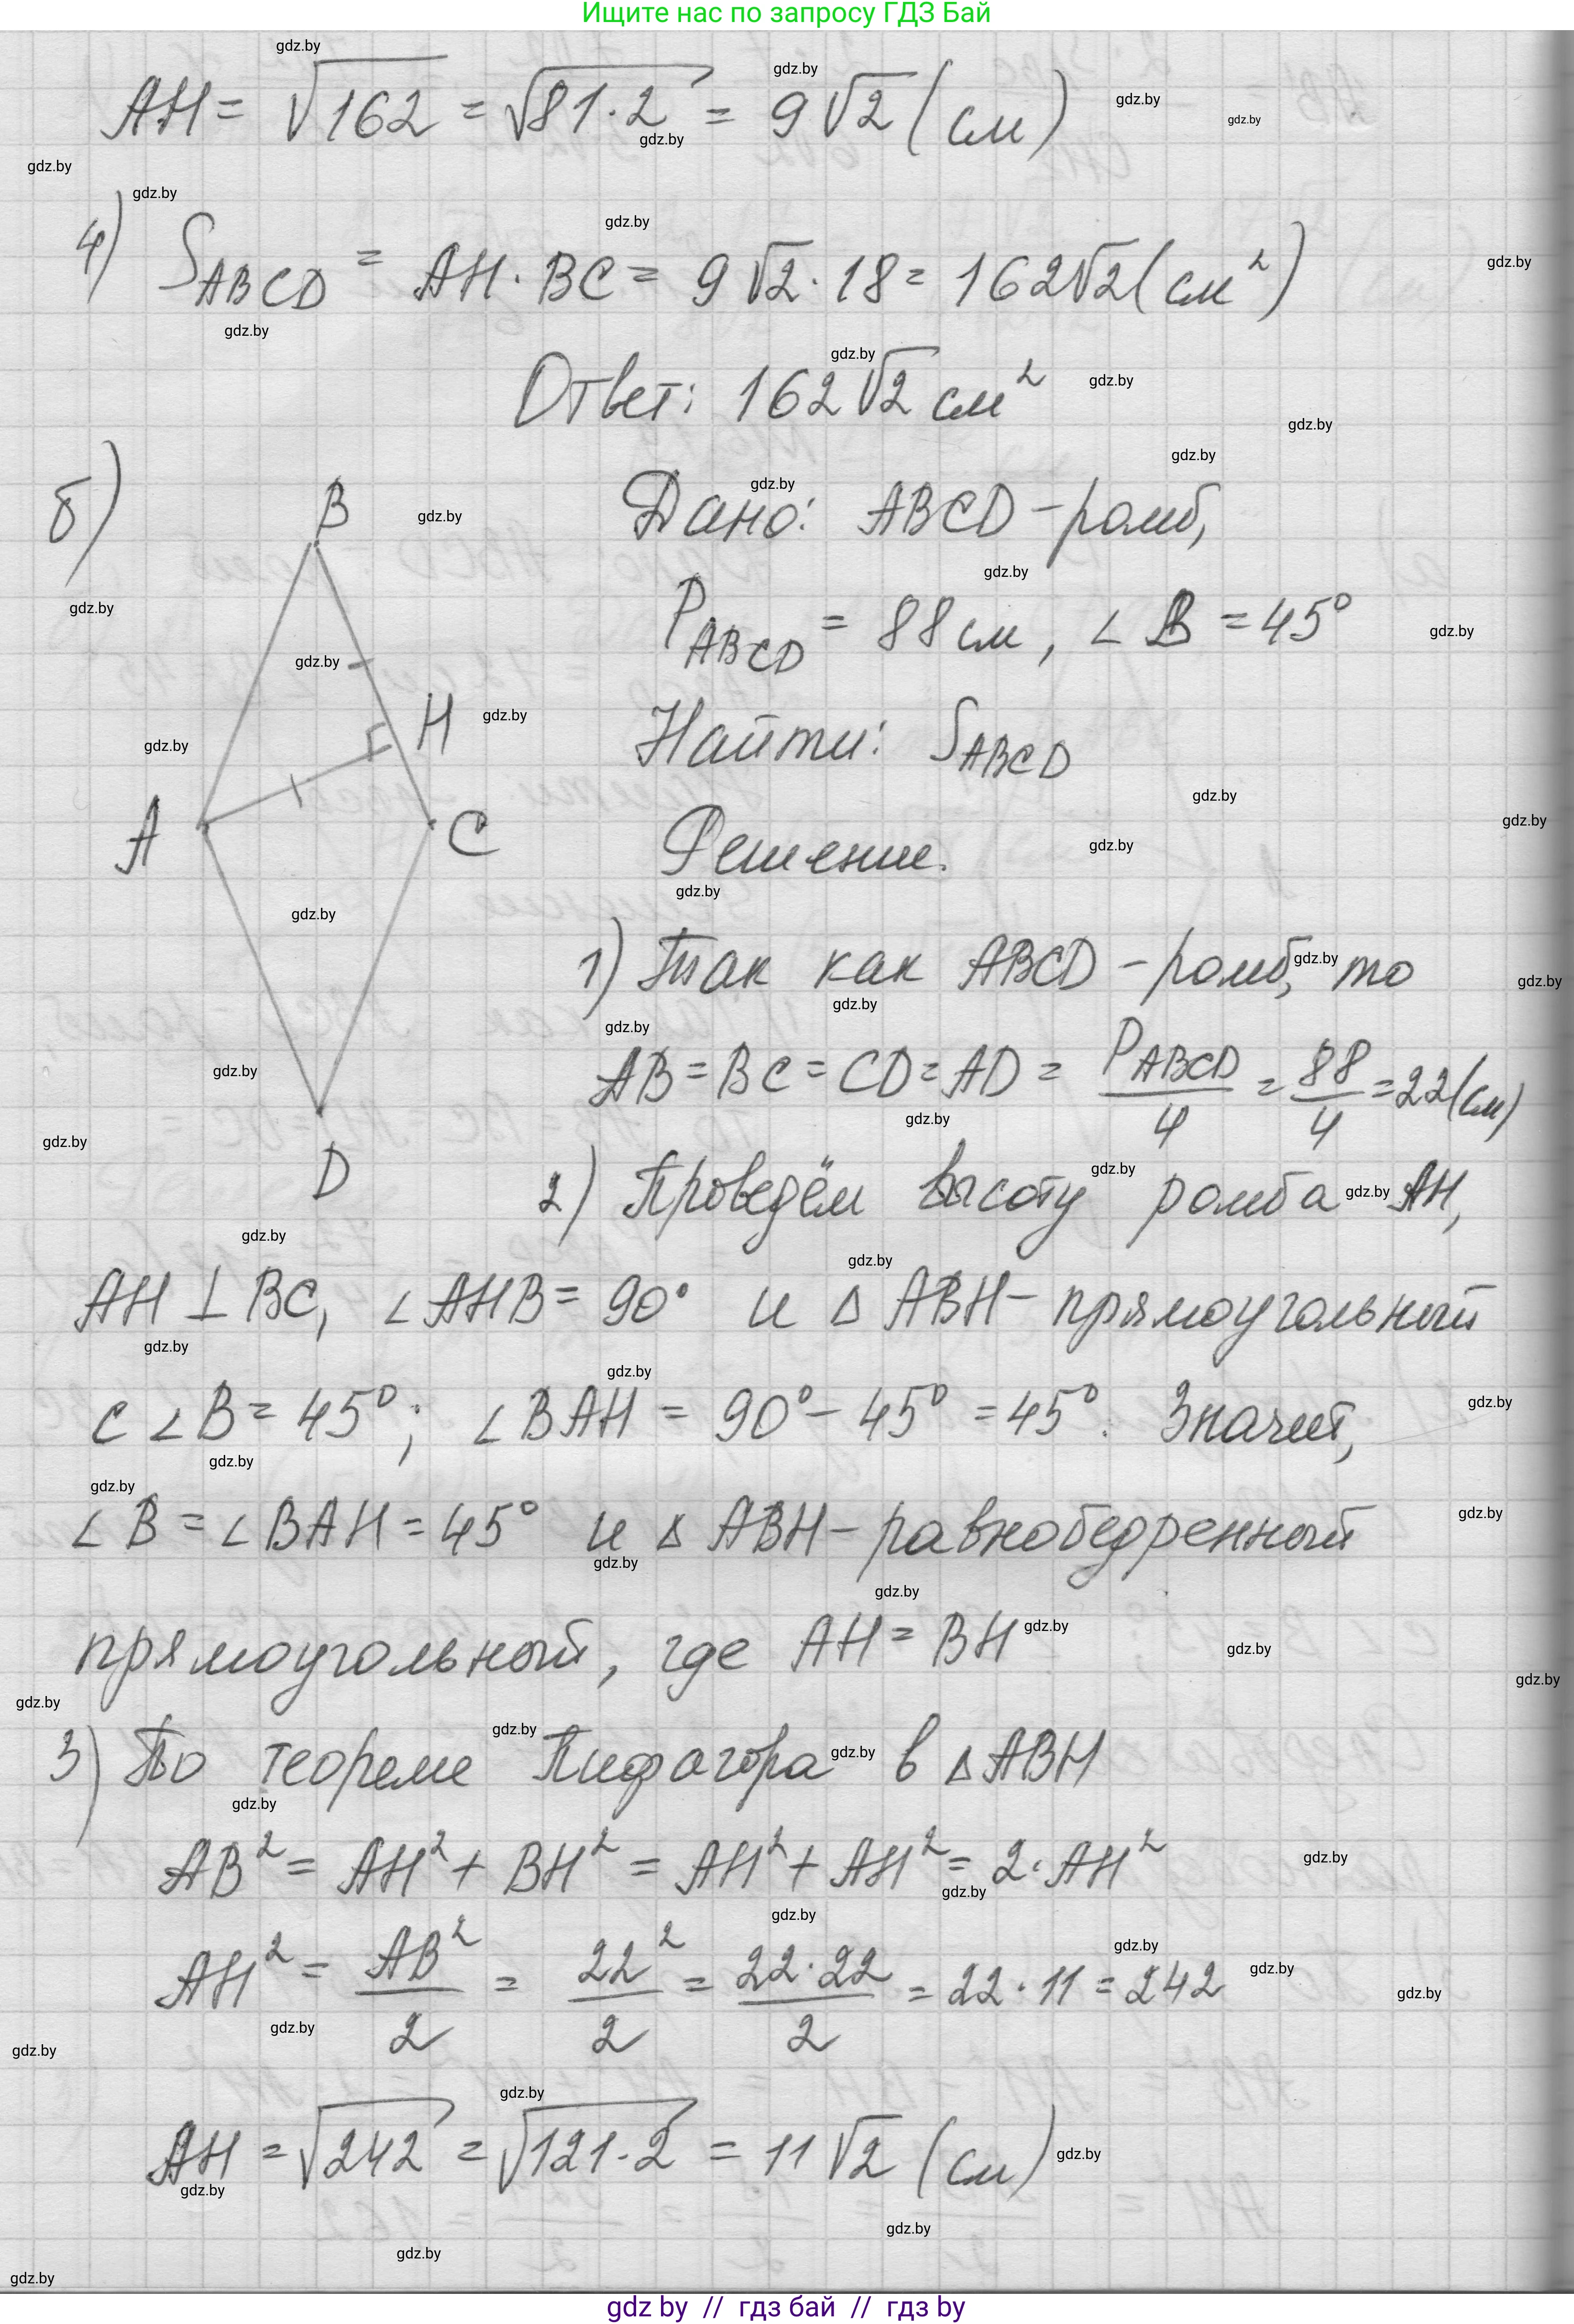 Ищите нас по запросу ГДЗ Бай
AH = √162 = √81·2 = 9√2 (см)
4) S_ABCD = AH · BC = 9√2 · 18 = 162√2 (см²)
Ответ: 162√2 см²
б)
B
H
A
C
D
Дано: ABCD – ромб,
P_ABCD = 88 см, ∠B = 45°
Найти: S_ABCD
Решение.
1) Так как ABCD – ромб, то
AB = BC = CD = AD = P_ABCD/4 = 88/4 = 22 (см)
2) Проведём высоту ромба AH,
AH ⊥ BC, ∠AHB = 90° и △ABH – прямоугольный
с ∠B = 45°; ∠BAH = 90° – 45° = 45°. Значит,
∠B = ∠BAH = 45° и △ABH – равнобедренный
прямоугольный, где AH = BH
3) По теореме Пифагора в △ABH
AB² = AH² + BH² = AH² + AH² = 2·AH²
AH² = AB²/2 = 22²/2 = 22·22/2 = 22·11 = 242
AH = √242 = √121·2 = 11√2 (см)
gdz by // гдз бай // гдз by